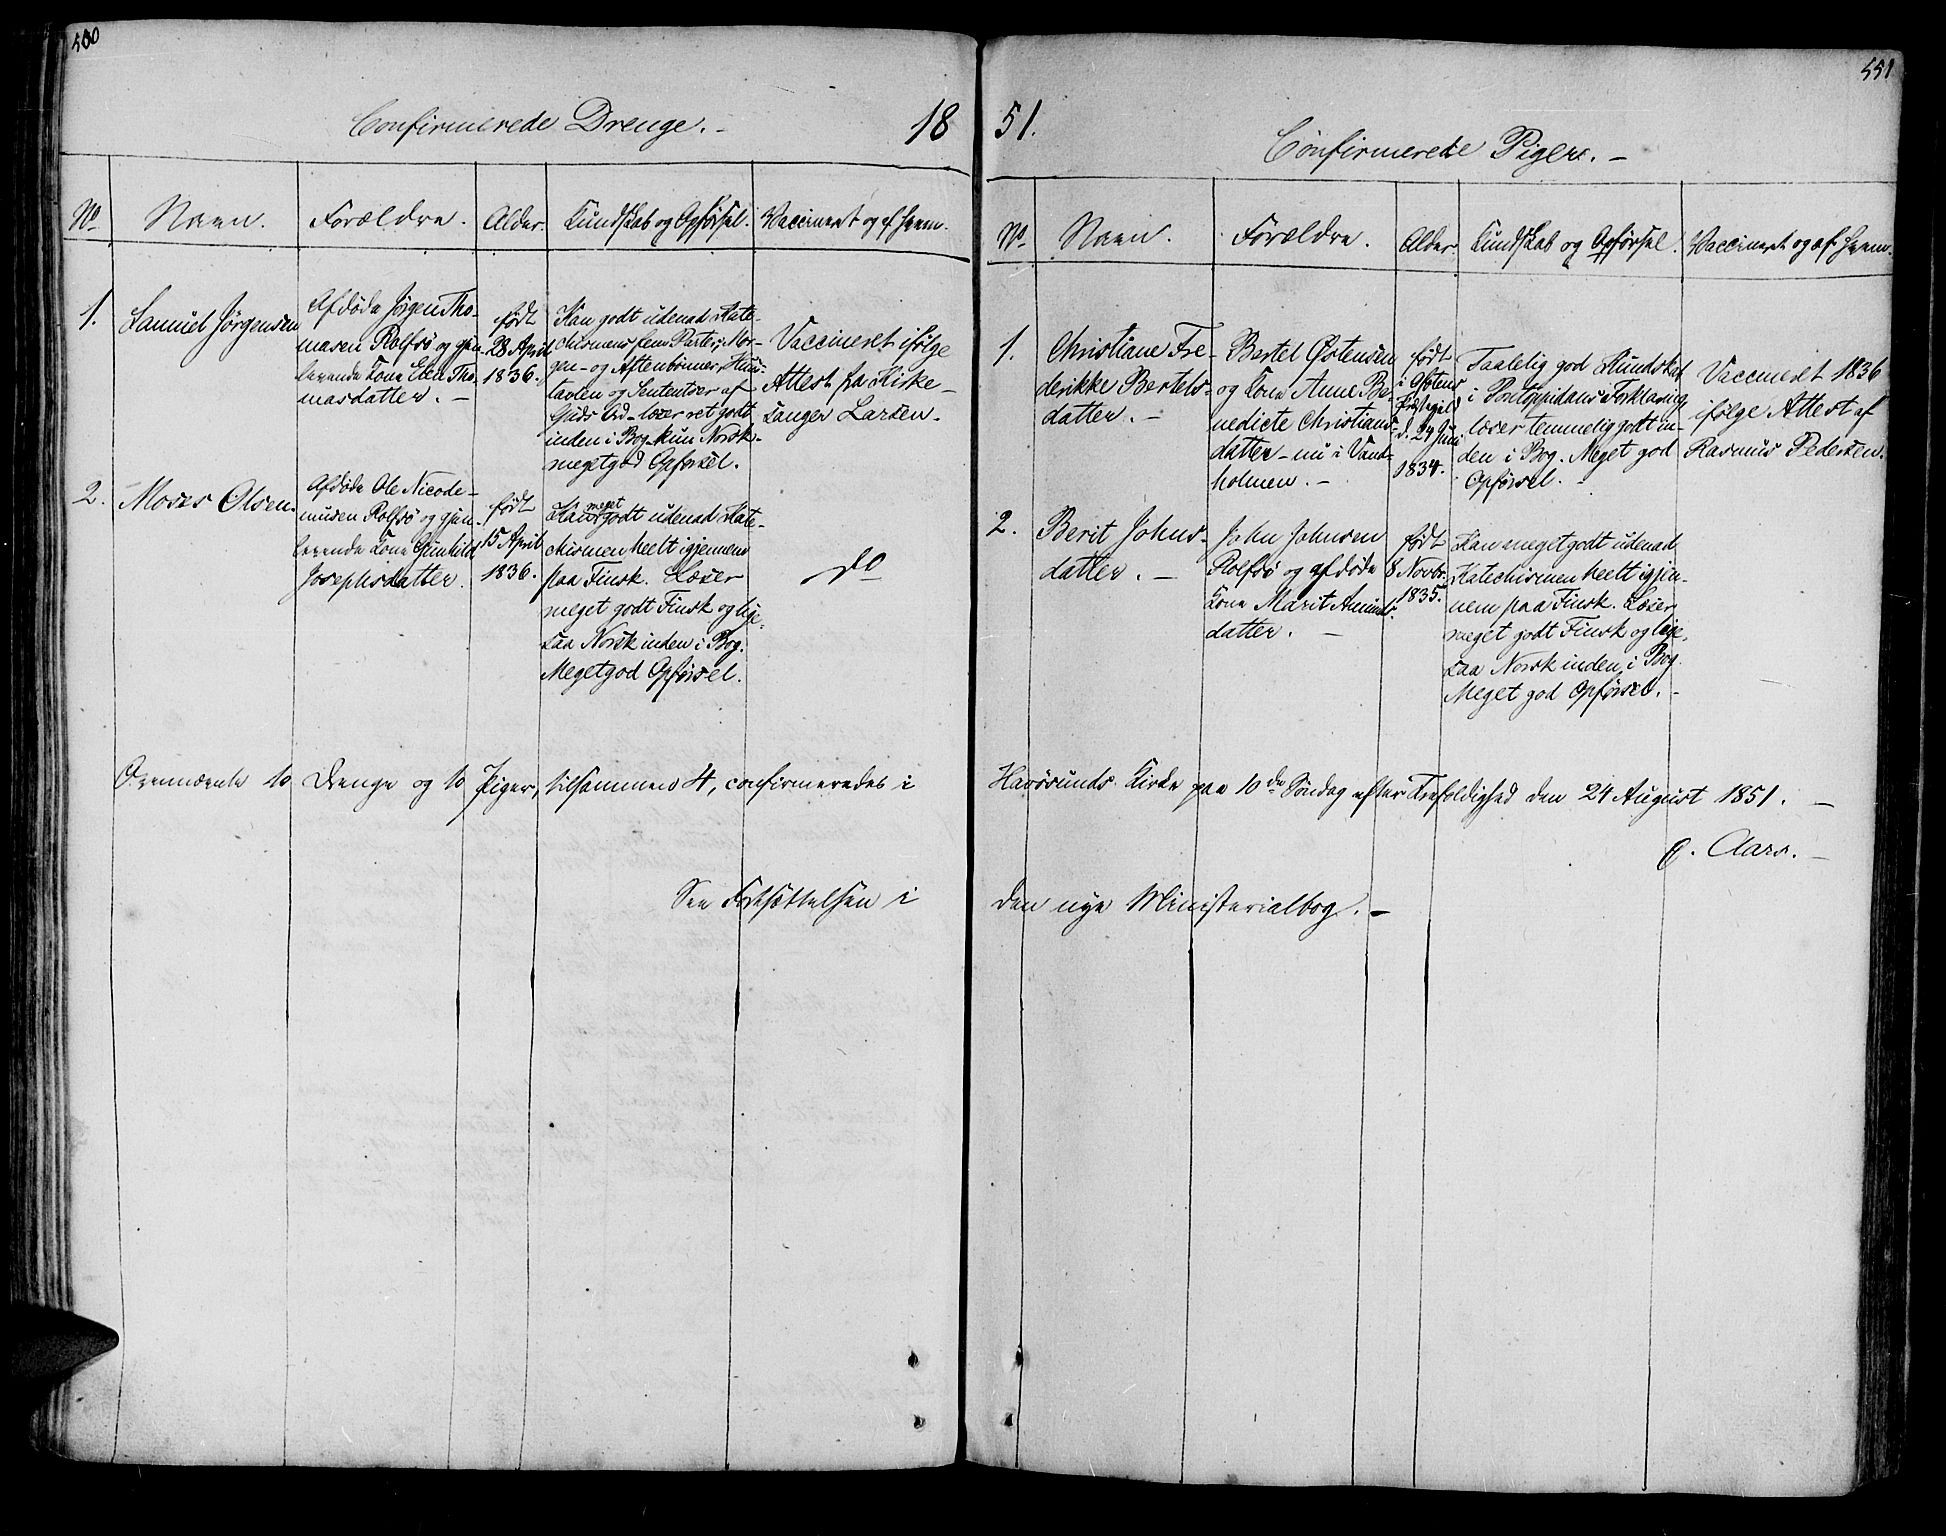 550
Confirmerede Drenge. -
18
No
Navn.
Forældre.
Alder.
Kundskab og Opførsel.
Vaccineret og af hvem.
1.
Samuel Jørgensen
Afdøde Jørgen Tho-
masen Rolfsø og gjen-
levende Kone Ellen Tho-
masdatter. -
født
28 April
1836.
Kan godt udenad Kate-
chismens fem Parter, Mor-
gen- og Aftenbønner, Huus-
tavlen og Sentenser af
Guds Ord - læser ret godt
inden i Bog kun Norsk.
meget god Opførsel.
Vaccineret ifølge
Attest fra Kirke-
sanger Larsen.
2.
Moses Olsen.
Afdøde Ole Nicode-
musen Rolfsø og gjen-
levende Kone Gunhild
Josephsdatter.
født
15 April
1836.
Kan meget godt udenad Kate-
chismen heelt igjennem
paa Finsk. Læser
meget godt Finsk og lige-
saa Norsk inden i Bog.
Meget god Opførsel.
do
Ovennævnte to Drenge og to Piger, tilsammen 4, confirmeredes i
See Fortsættelsen i
551
51.
Confirmerede Piger. -
No
Navn.
Forældre.
Alder.
Kundskab og Opførsel.
Vaccineret og af hvem.
1.
Christiane Fre-
derikke Bertels-
datter. -
Bertel Østensen
og Kone Anne Be-
nedicte Christians-
datter - nu i Vand-
holmen. -
født
i
Præstegjeld
d. 24 Juni
1834.
Taalelig god Kundskab
i Pontoppidans Forklaring
læser temmelig godt in-
den i Bog. Meget god
Opførsel. -
Vaccineret 1836
ifølge Attest af
Rasmus Pedersen.
2.
Berit Johns-
datter. -
John Johnsen
Rolfsø og afdøde
Kone Marit Amunds-
datter. -
født
8 Novbr.
1835.
Kan meget godt udenad
Katechismen heelt igjen-
nem paa Finsk. Læser
meget godt Finsk og lige-
saa Norsk inden i Bog.
Meget god Opførsel. -
Havøsunds Kirke paa 10de Søndag efter Trefoldighed den 24 August 1851. -
Aars. -
den nye Ministerialbog. -